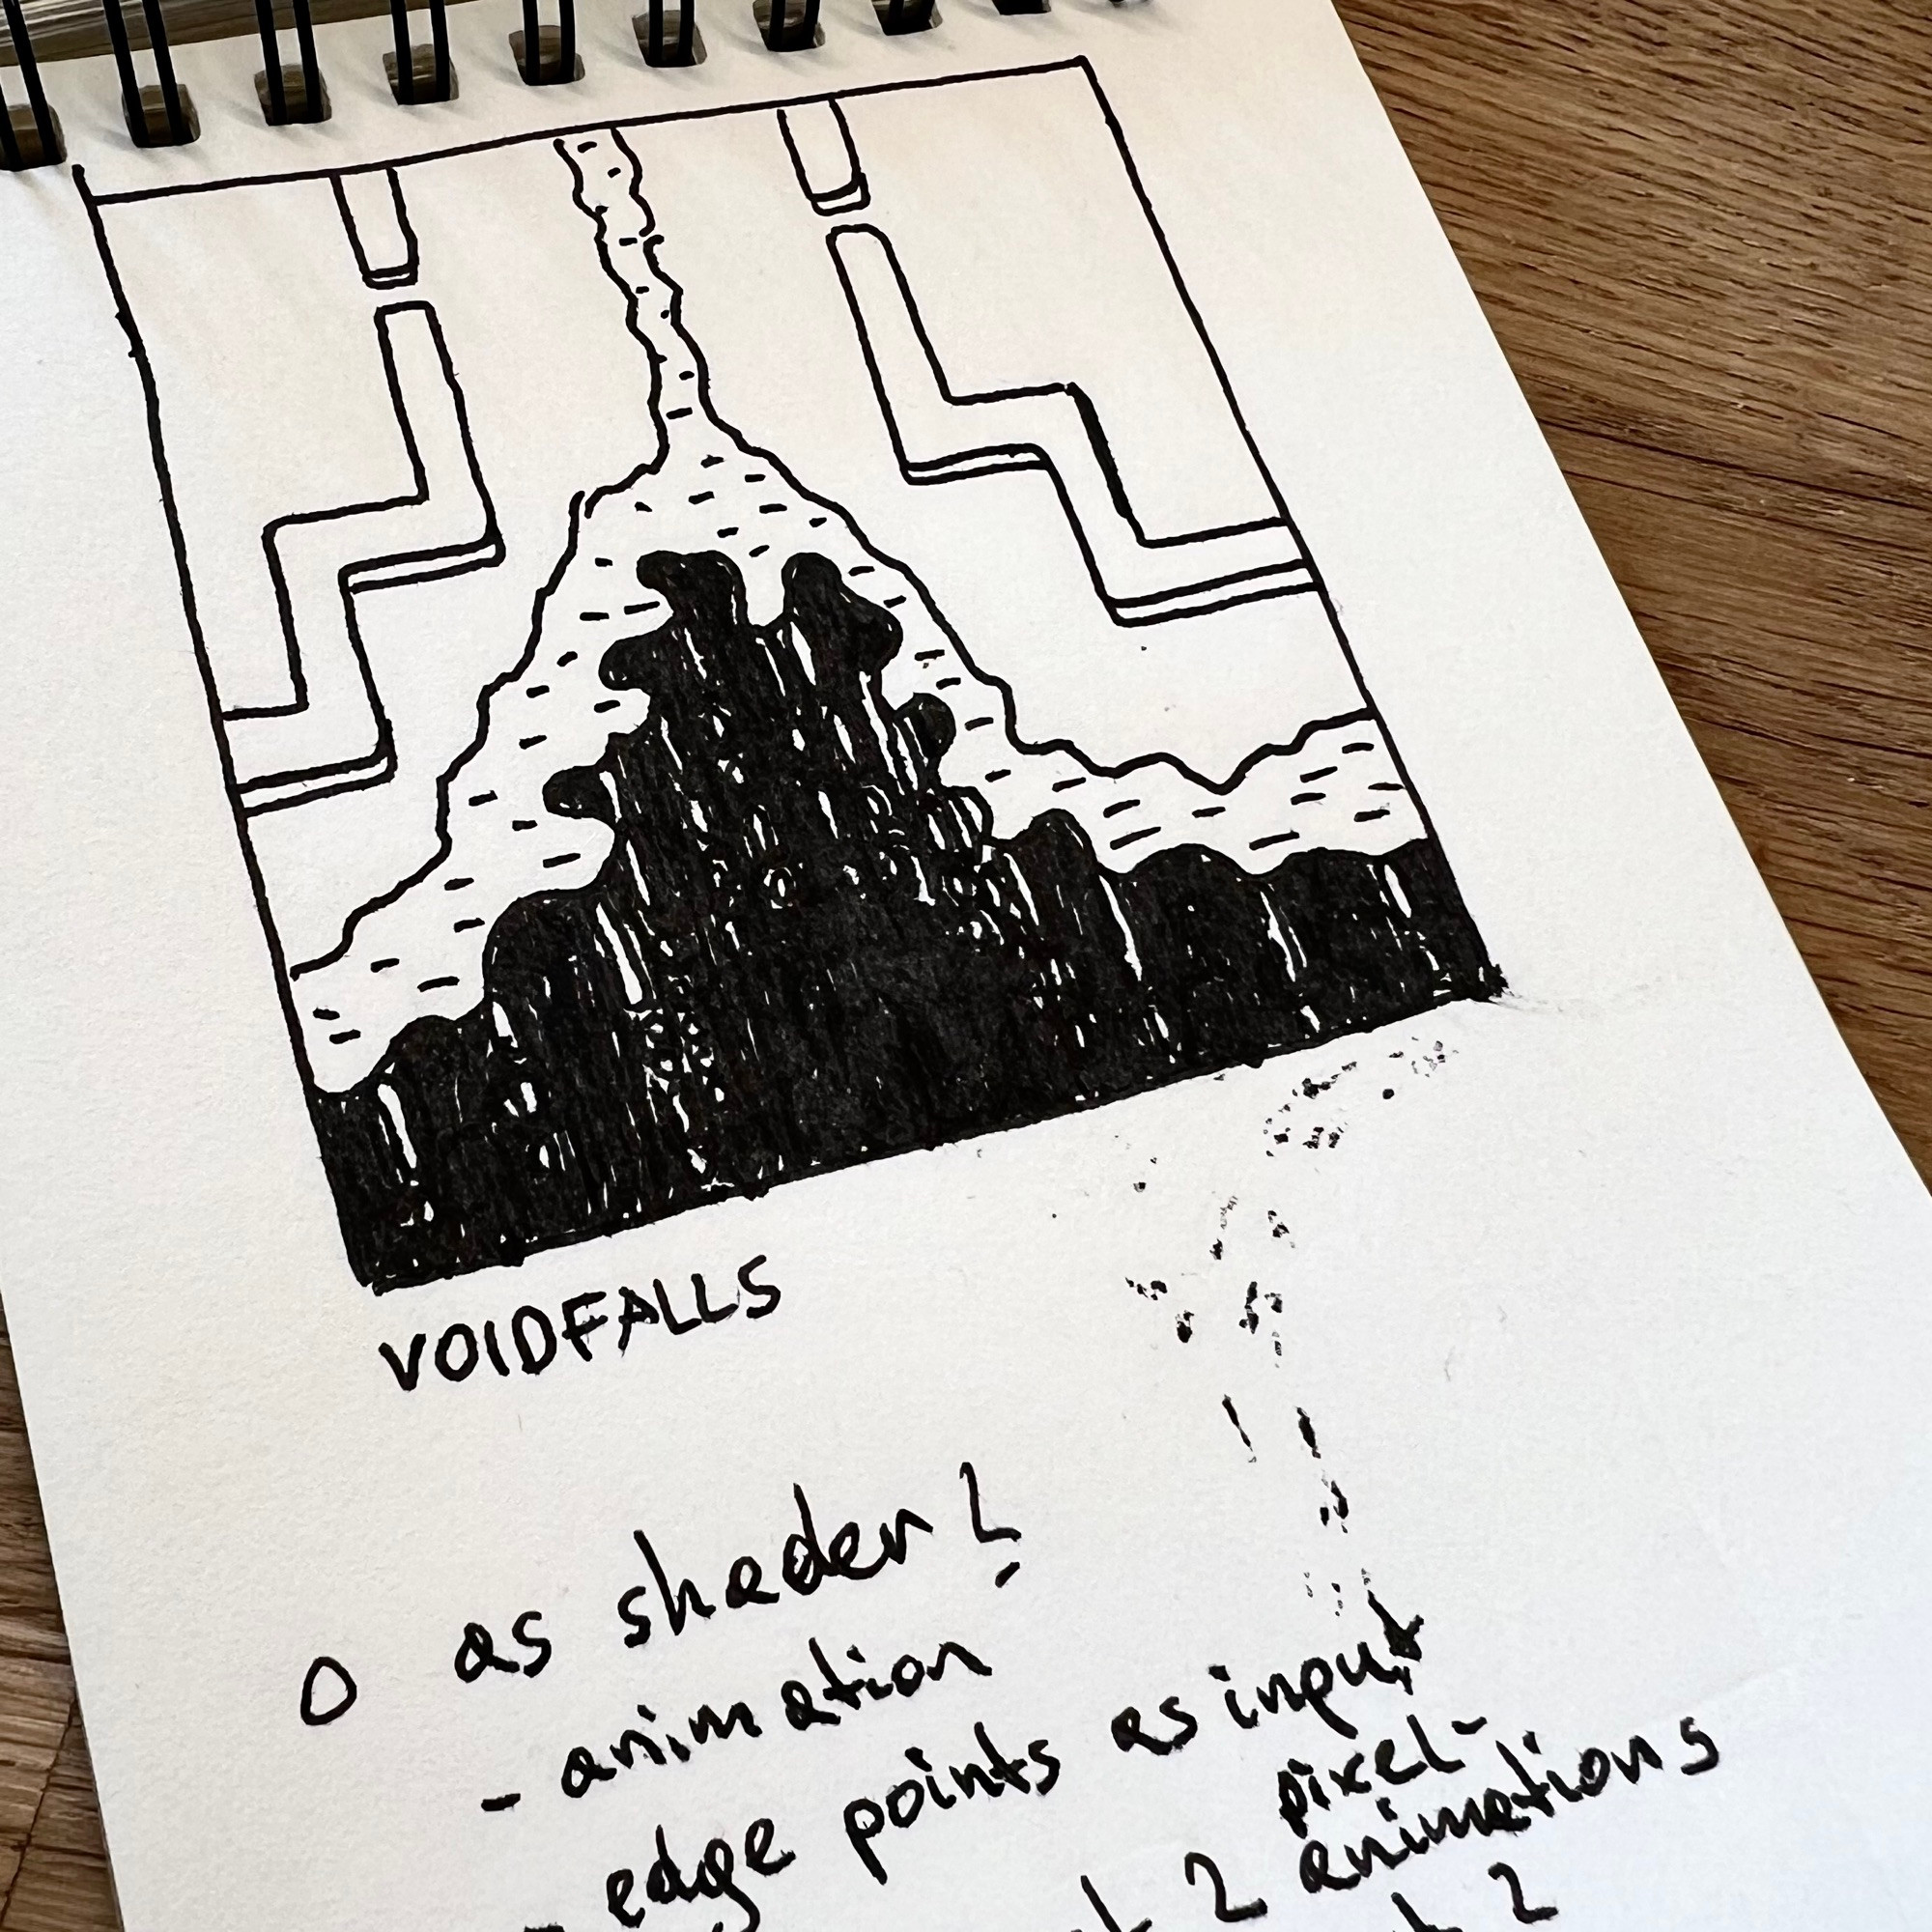 VOIDFALLS
O as shader?
- animation
- edge points as input
pixel-
2 animations
2